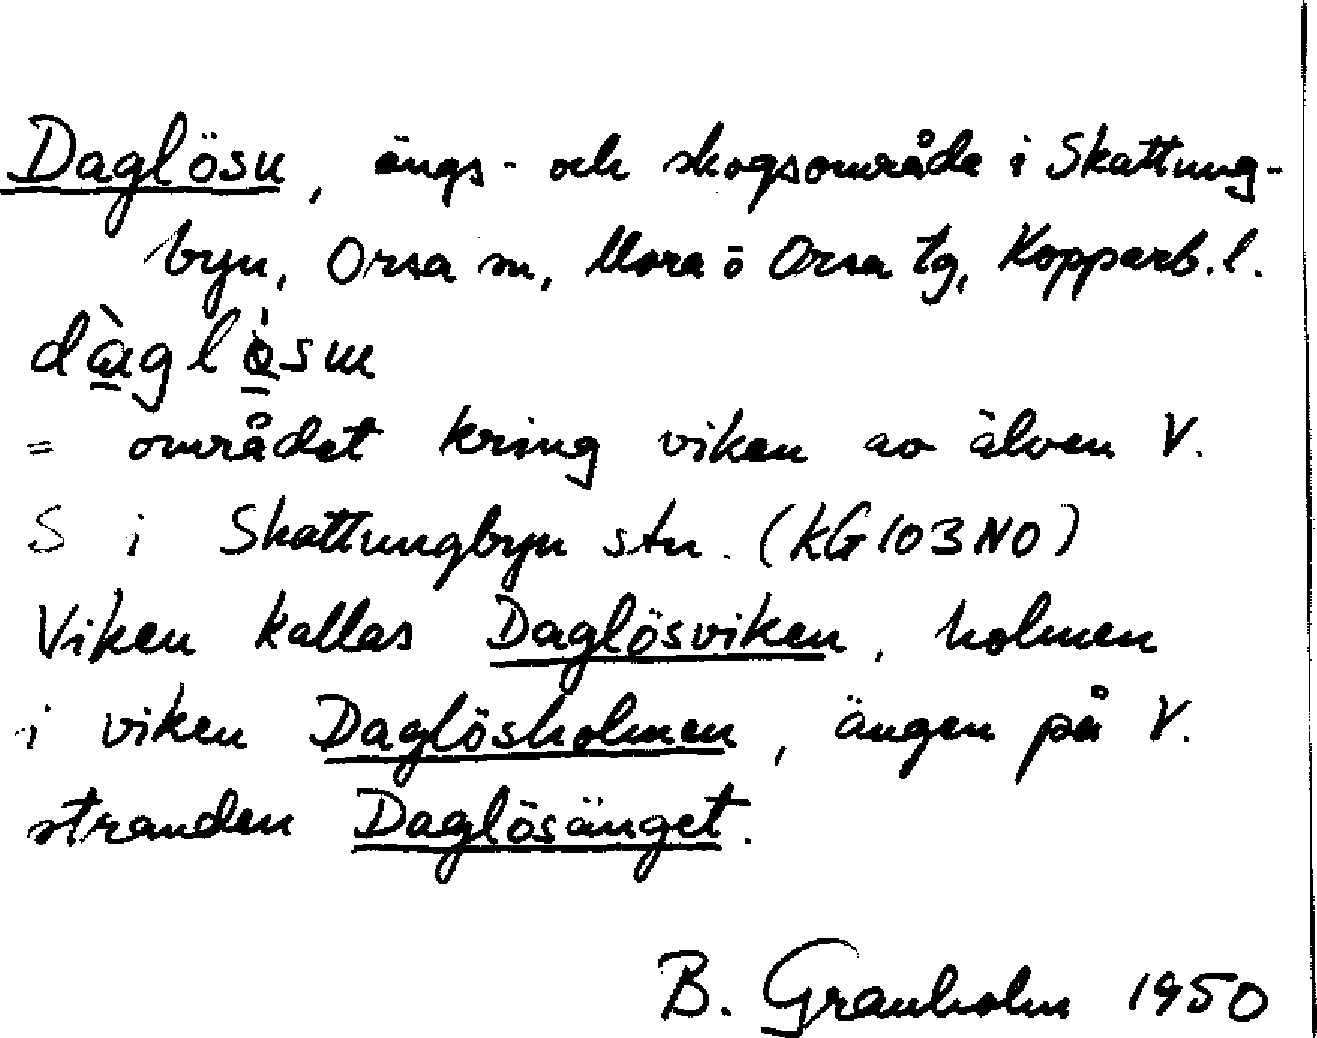 Daglösu, ängs- och skogsområde i Skattung-
byn, Orsa sn, Mora ö Orsa tg, Kopparb. l.
dàglösuı
= området kring viken av älven V.
S i Skattungbyn stn. (KG 103 NO)
Viken kallas Daglösviken, holmen
i viken Daglösholmen, ängen på V.
stranden Daglösänget.
B. Granholm 1950